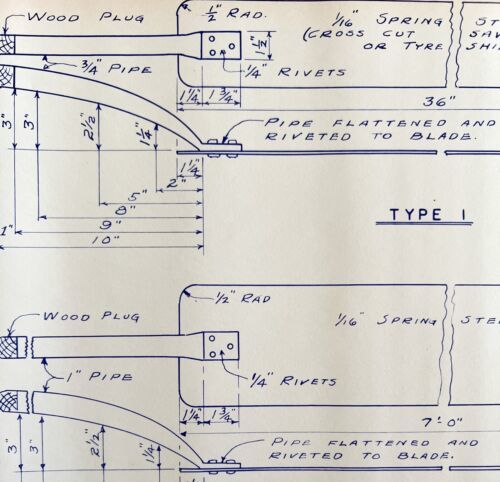 WOOD PLUG
1/2" RAD.
1/16" SPRING STE
(CROSS CUT SAW
OR TYRE SHI
1 1/2"
3/4" PIPE
1/4" RIVETS
1 1/4" 1 3/4"
36"
PIPE FLATTENED AND
RIVETED TO BLADE.
3" 3" 2 1/2" 1 1/4"
1 1/4"
2"
5"
8"
9"
1" 10"
TYPE 1
WOOD PLUG
1/2" RAD
1/16" SPRING STE
1" PIPE
1/4" RIVETS
1 1/4" 1 3/4"
7'-0"
PIPE FLATTENED AND
RIVETED TO BLADE.
3" 3" 2 1/2" 1 1/4"